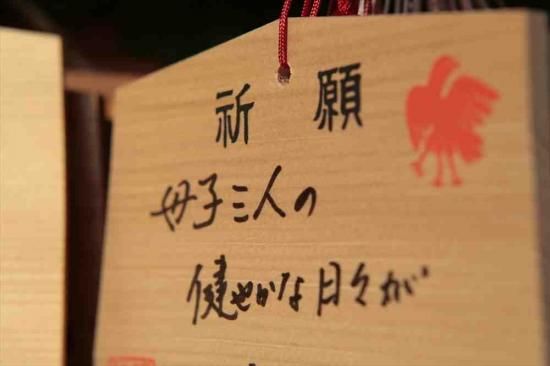 祈願
母子三人の
健やかな日々が